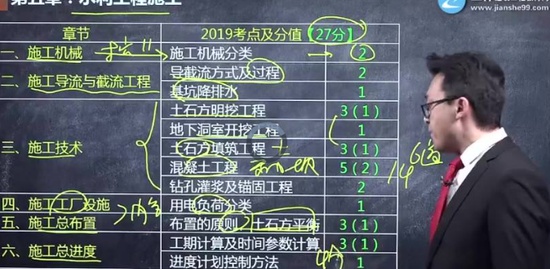 第五章：水利工程施工
www.jianshe99.com
章节 2019考点及分值【27分】
一、施工机械 施工机械分类 2
二、施工导流与截流工程 导截流方式及过程 2
基坑降排水 1
三、施工技术 土石方明挖工程 3（1）
地下洞室开挖工程 1
土石方填筑工程 3（1）
混凝土工程 5（2）
钻孔灌浆及锚固工程 2
四、施工工厂设施 用电负荷分类 1
五、施工总布置 布置的原则 土石方平衡 3（1）
六、施工总进度 工期计算及时间参数计算 3（1）
进度计划控制方法 1